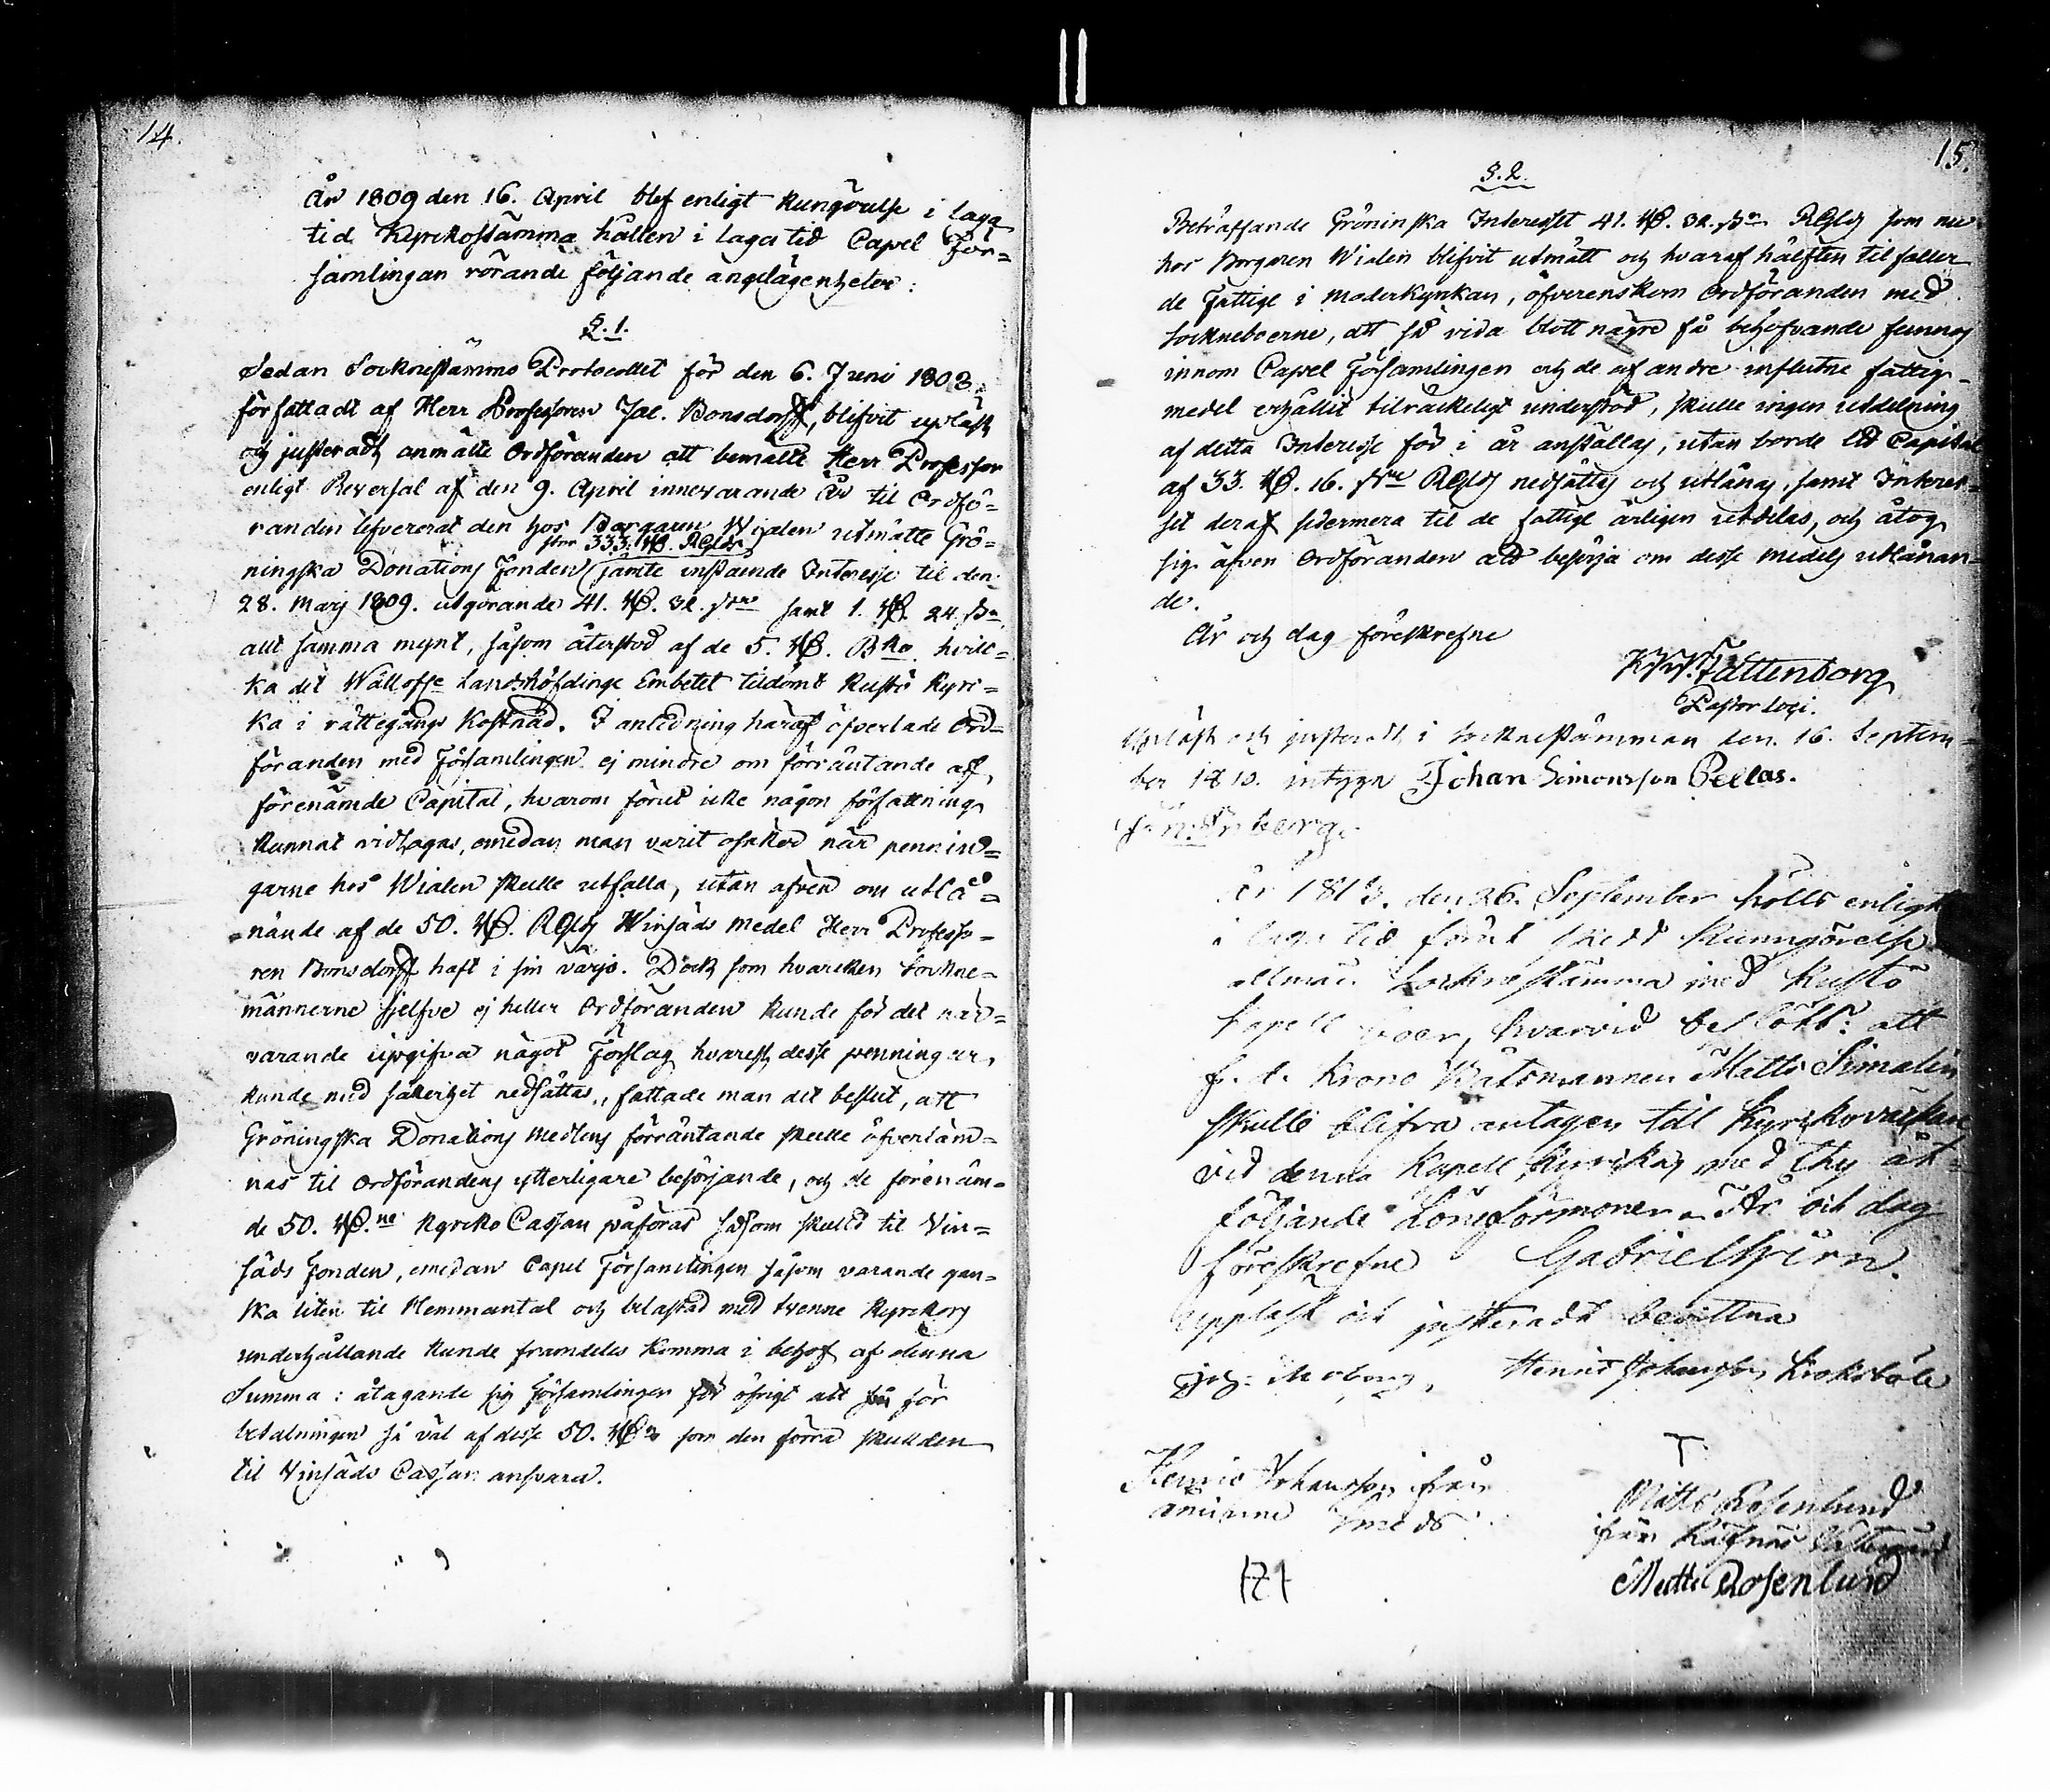 14.
År 1809 den 16. April blef enligt Kungörelse i laga
tid Kyrkostämma hållen i laga tid Capel För=
samlingan rörande följande angelägenheter:
§. 1.
Sedan Socknestämmo Protocollet för den 6. Juni 1808.
författadt af Herr Professoren Jac. Bonsdorff, blifvit upläst
och justeradt, anmälte Ordföranden att bemälte Herr Professor
enligt Reversal af den 9. April innevarande År til Ordfö=
randen lefvererat den hos Borgaren Wialen utmätte Grö=
stor 333. Rd. RGlds
ningska Donations Fonden jämte innstående Interesse til den
28. Marj 1809. utgörande 41. Rd. 32. s. samt 1. Rd. 24. s.
allt samma mynt, såsom återstod af de 5. Rd. Bko hvil=
ka det Wällofl. Landshöfdinge Embetet tildömt Kustö Kyr=
ka i rättegångs Kostnad. I anledning häraf öfverlade Ord=
föranden med Församlingen ej mindre om förräntande af
förenämde Capital, hvarom förut icke någon författning
kunnat vidtagas, emedan man varit osäker när pennin=
garne hos Wialen skulle utfalla, utan äfven om utlå=
nande af de 50. Rd. RGlds Winsäds medel Herr Professo=
ren Bonsdorff haft i sin värjo. Dock som hvarcken Sockne=
männerne sjelfve ej heller Ordföranden kunde för det när=
varande upgifva något Förslag, hvarest desse penningar
kunde med säkerhet nedsättas, fattade man det beslut, att
Gröningska Donations Medlens förräntande skulle öfverläm=
nas til Ordförandens ytterligare besörjande, och de förenäm=
de 50. Rd.ne Kyrko Cassan påföras såsom skuld til Vin=
säds Fonden, emedan Capel Församlingen såsom varande gan=
ska liten til Hemmantal och belastad med tvenne Kyrkors
underhållande kunde framdeles komma i behof af denna
Summa: åtagande sig Församlingen för öfrigt att för
betalningen så väl af desse 50. Rd. som den förra skulden
til Vinsäds Cassan ansvara.
15.
§. 2.
Beträffande Gröninska Interesset 41. Rd. 32. s. RGlds som nu
hos Borgaren Wialen blifvit utmätt och hvaraf hälften tilfaller
de Fattige i Moderkyrkan, öfverenskom Ordföranden med
Sockneboerne, att så vida blott några få behöfvande funnos
innom Capel Församlingen och de af andre influtne fattig=
medel erhållit tilräckeligt understöd, skulle ingen utdelning
af detta Interesse för i år anställas, utan borde ett Capital
af 33. Rd. 16. s. RGlds nedsättas och utlånas, samt Interes=
set deraf sedermera til de fattige årligen utdelas, och åtog
sig äfven Ordföranden att besörja om desse medels utlånan=
de.
År och dag föreskrefne
Fattenborg
Pastor loci.
Upläst och justeradt i Socknestämman den 16. Septem=
ber 1810. intyga Johan Simonsson Pellas.
År 1813. den 26. September hölls enligt
i laga tid förut skedd Kunngörelse
allmän Sockne stämma med Kustö
Kapell boer, hvarvid beslöts: att
f. d. Krono Båtsmannen Matts Simelin
skulle blifva antagen till Kyrkovärdare
vid denna Kapell Kyrka, med thy åt=
följande Löneförmoner. År och dag
föreskrefne Gabriel
Uppläst och justeradt bevittna
Moberg, Henric Johansson Kroksböle
Henric Johansson från
Matts Rosenlund
från
Matts Rosenlund